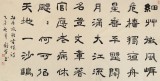 細草微風岸
危檣獨夜舟
星垂平野闊
月湧大江流
名豈文章著
官應老病休
飄飄何所似
天地一沙鷗